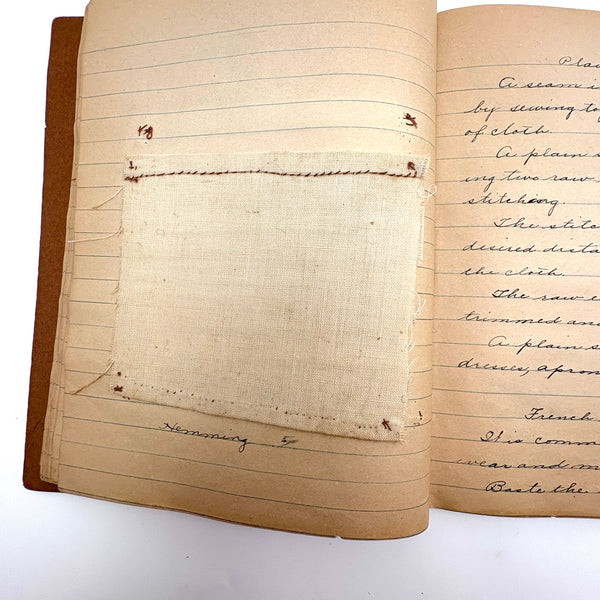 Hemming 5
Plai
A seam i
by sewing to
of cloth.
A plain s
ing two raw
stitching.
The stitc
desired dista
the cloth.
The raw e
trimmed and
A plain s
dresses, apron
French
It is comm
wear and m
Baste the